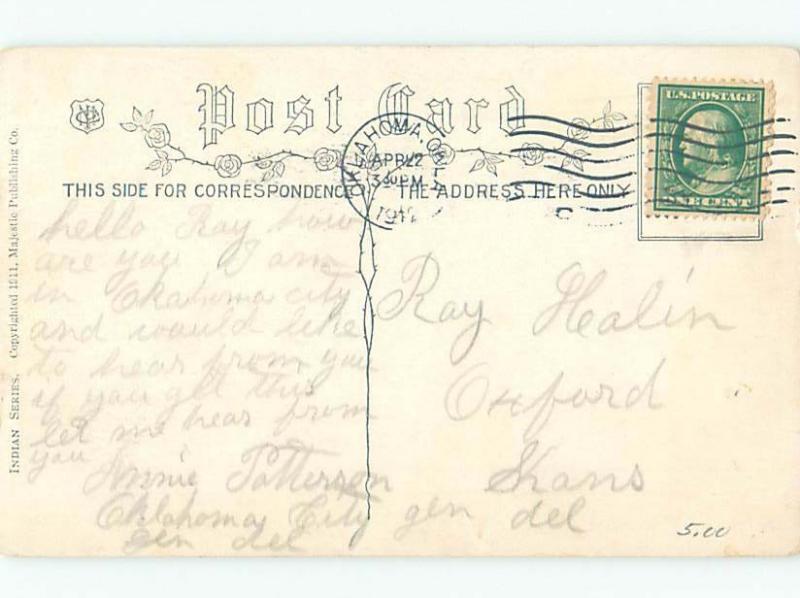 Post Card
THIS SIDE FOR CORRESPONDENCE
THE ADDRESS HERE ONLY
OKLAHOMA, OKLA.
APR 22
3 30 PM
1912
U.S. POSTAGE
ONE CENT
INDIAN SERIES. Copyrighted 1911, Majestic Publishing Co.
hello Ray how
are you I am
in Okahoma city
and would like
to hear from you
if you get this
let me hear from
you
Annie Patterson
Oklahoma City
gen del
Ray Healin
Oxford
Kans
gen del
5.00